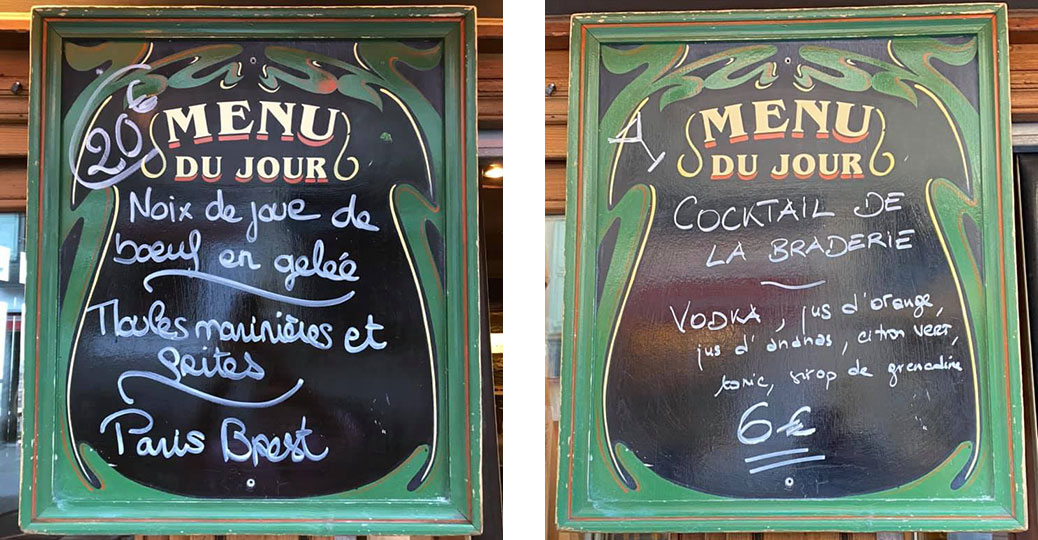 20€
MENU
DU JOUR
Noix de joue de
bœuf en gelée
Moules marinières et
frites
Paris Brest
MENU
DU JOUR
COCKTAIL DE
LA BRADERIE
VODKA, jus d'orange,
jus d'ananas, citron vert,
tonic, sirop de grenadine
6€